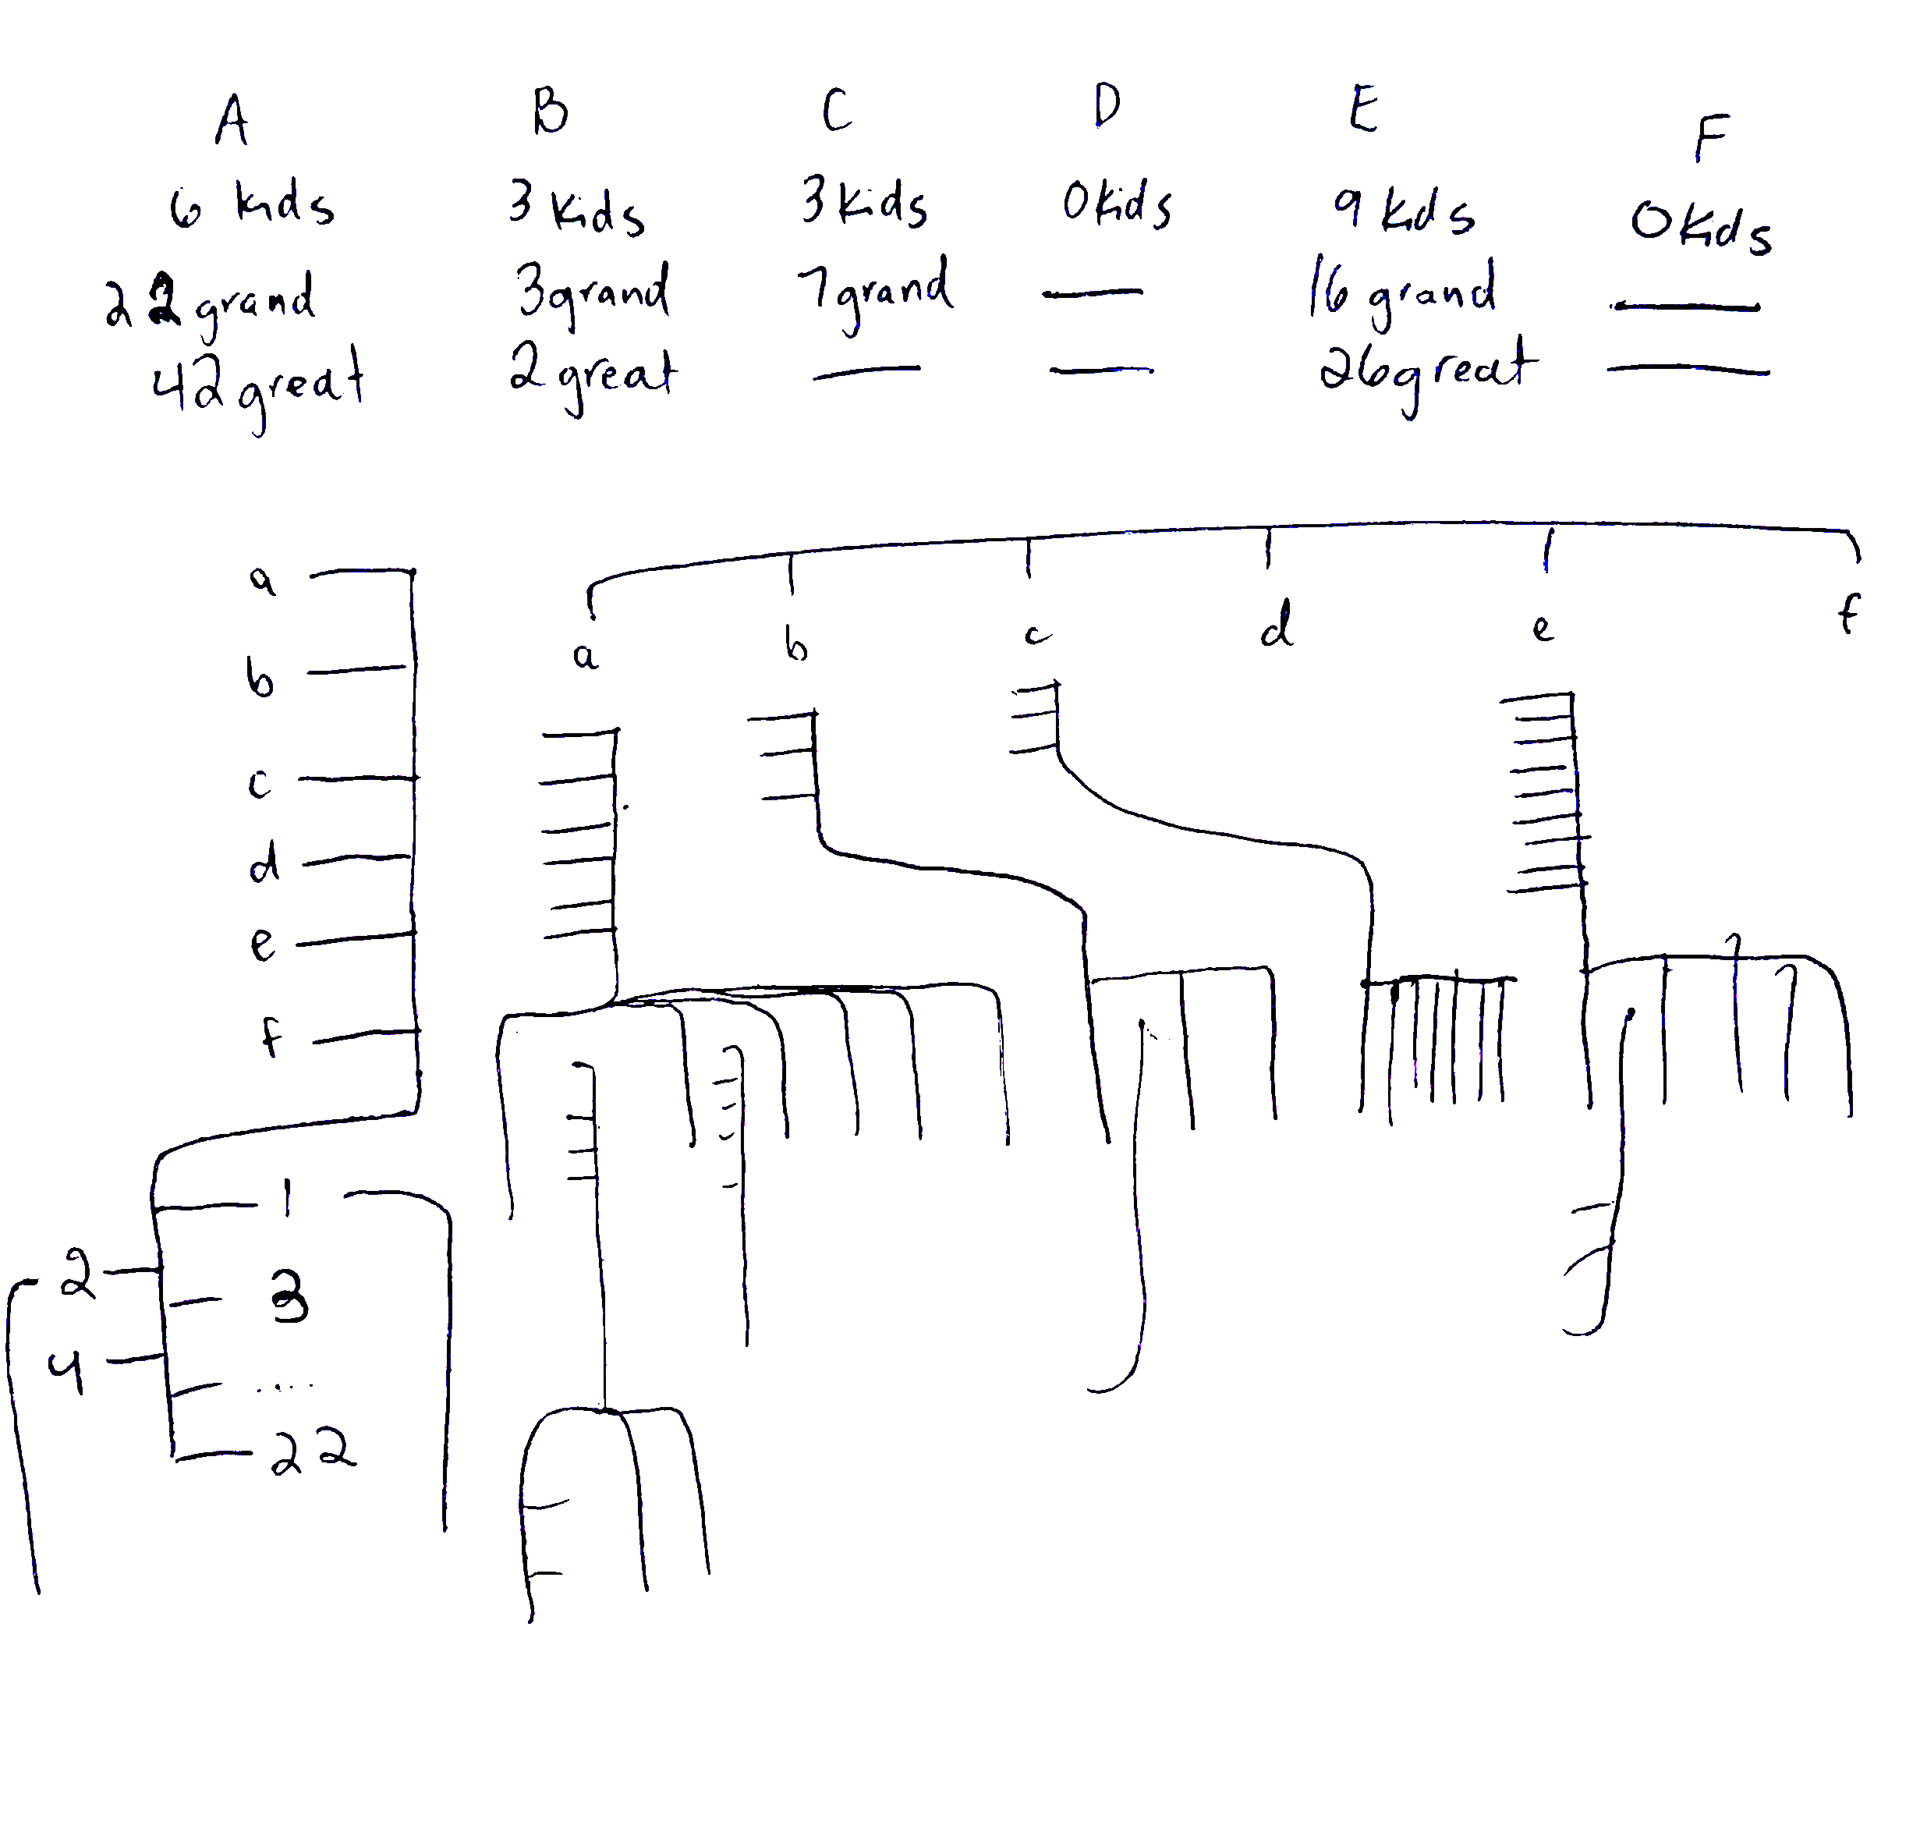 A B C D E F
6 kids 3 kids 3 kids 0 kids 9 kids 0 kids
22 grand 3 grand 7 grand — 16 grand —
42 great 2 great — — 26 great —
a b c d e f
a
b
c
d
e
f
1
2
3
4
....
22